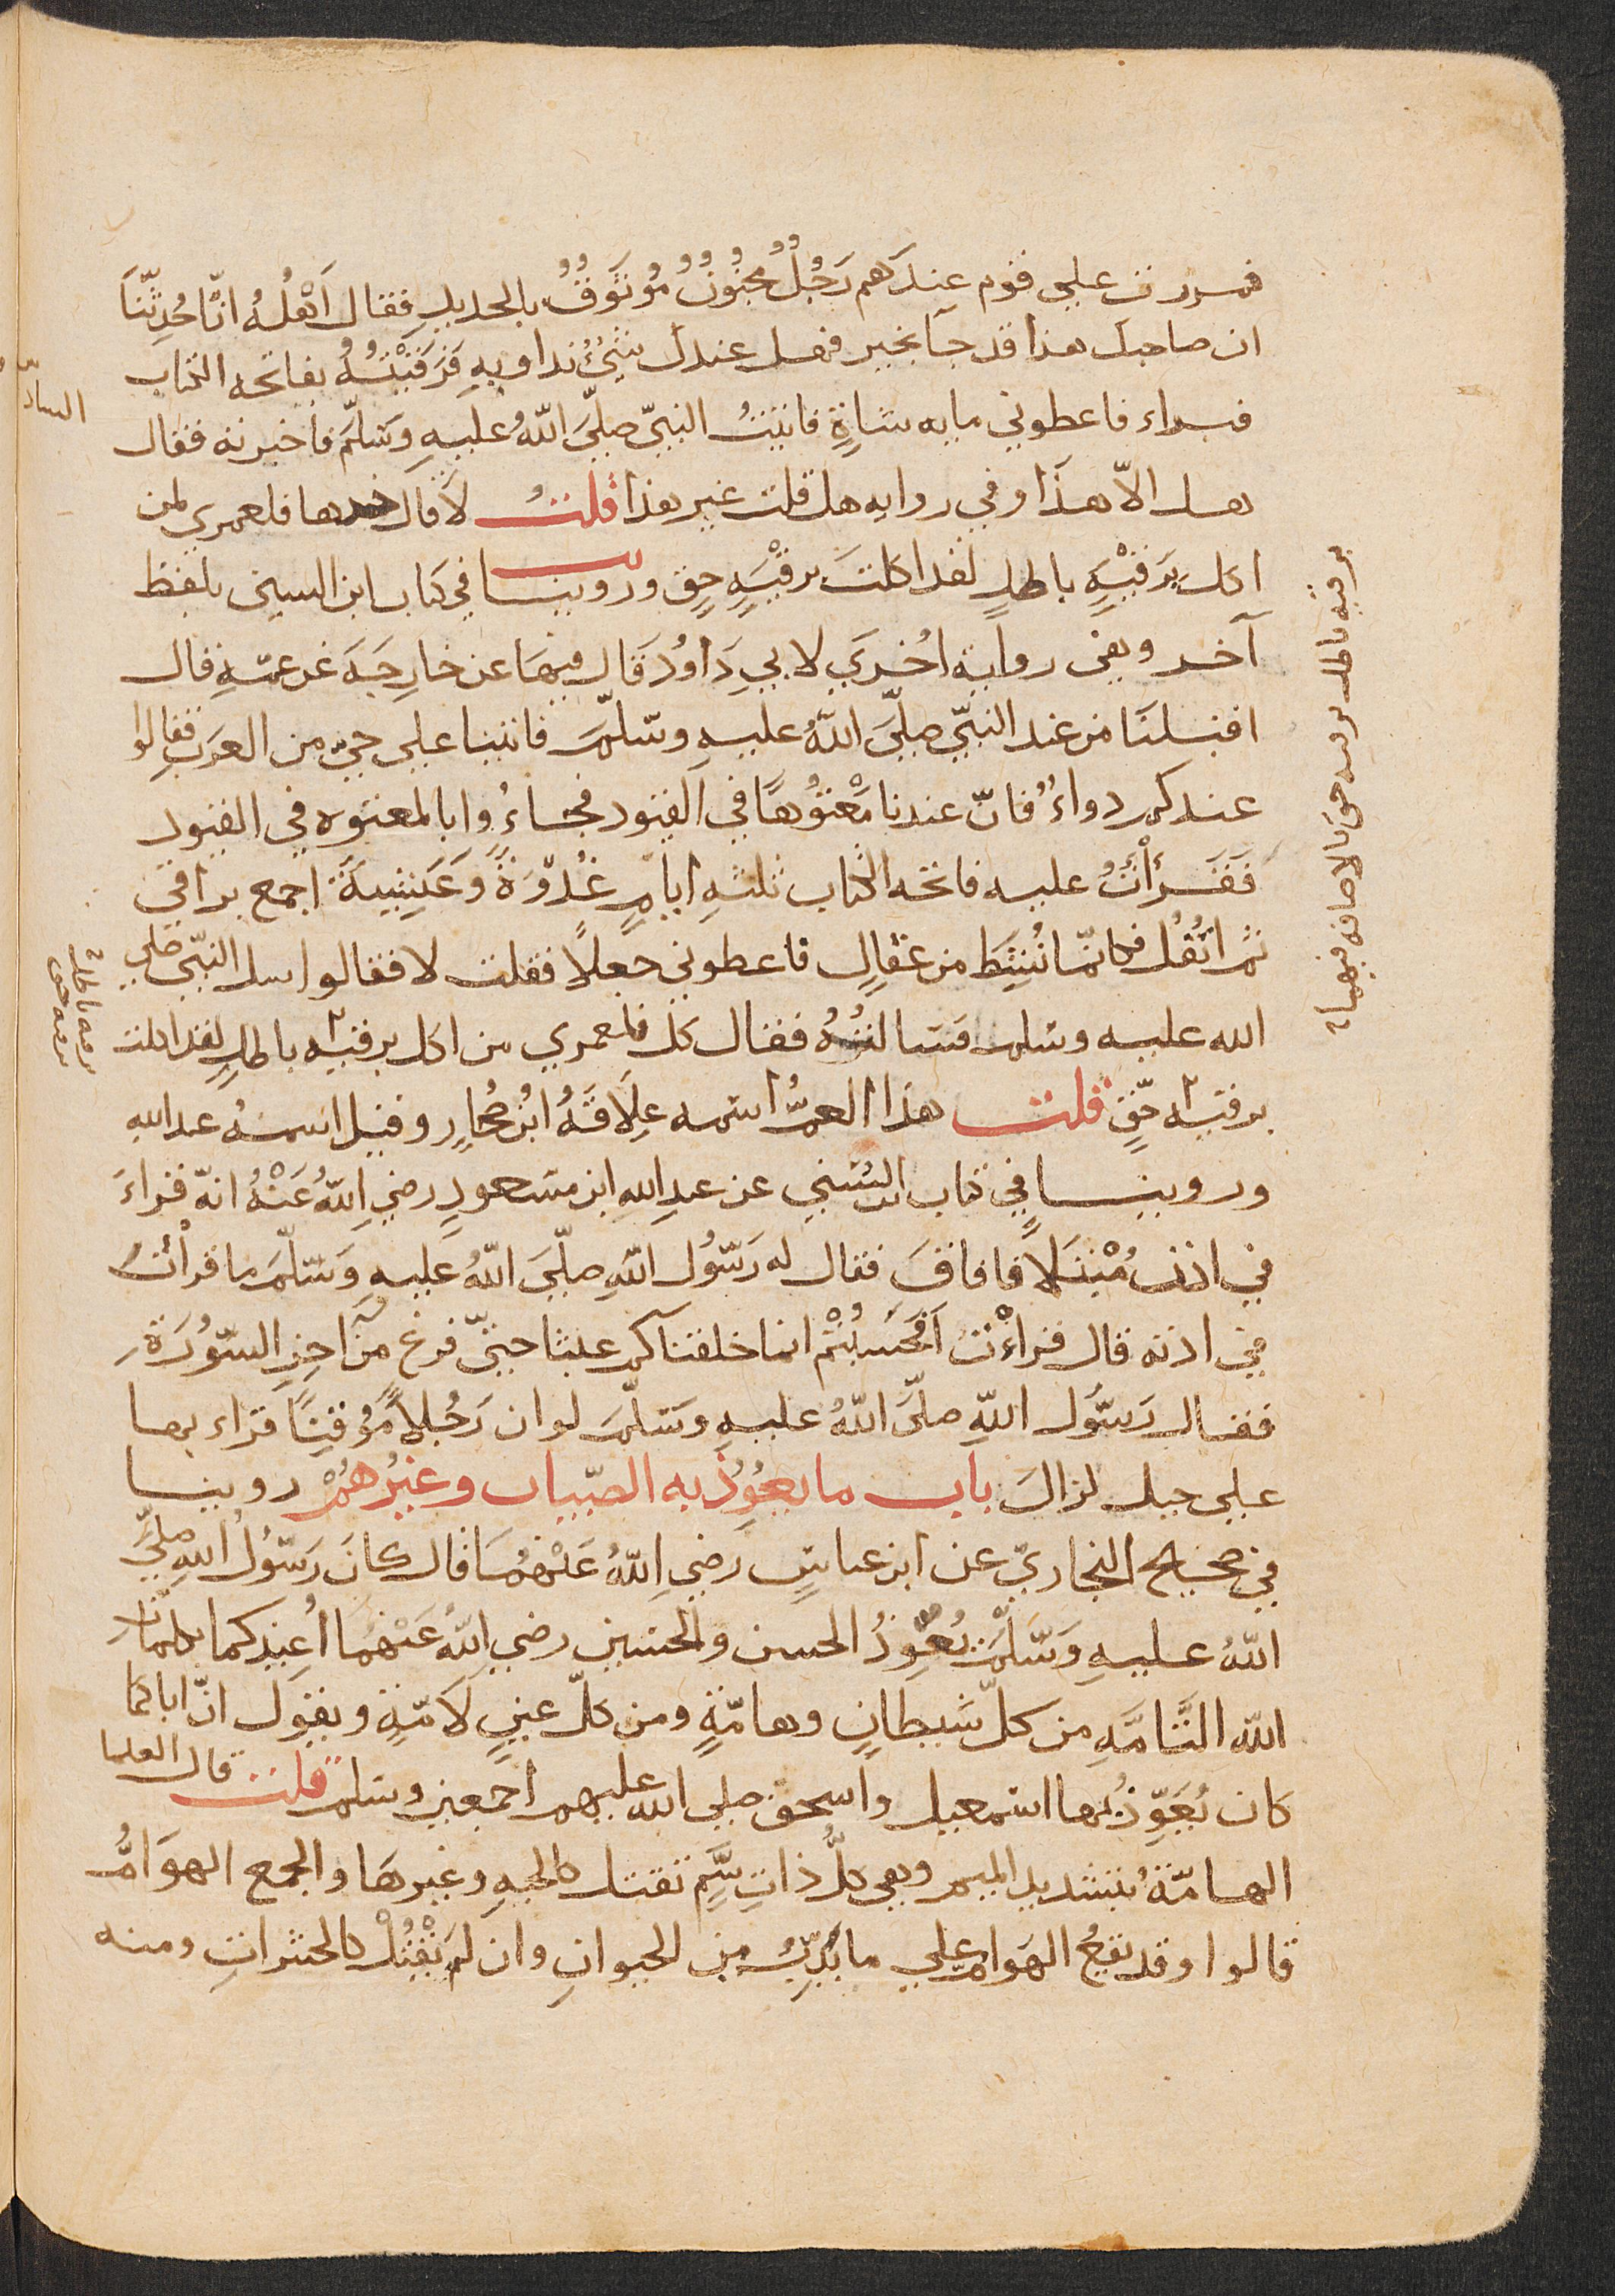 فمررت على قوم عِندَهم رَجُلٌ مجنُونٌ مُوثَقٌ بالحديدِ فقال اَهْلُهُ انّا حُدِّثنَا
ان صاحبك هذا قد جآ بخير فهل عندك شيْءٌ تداويهِ فَرَقَيْتُهُ بفاتحه الكتاب
فبراء فاعطوني مايه شاةٍ فاتيتُ النبيّ صلّيَ اللهُ عليهِ وَسَلّمَ فاخبرته فقال
هل الاّ هذَا وفي روايه هل قلت غير هذا قلتُ لا قال خدها فلعمري لمن
اكل بِرَقيْهِ باطلٍ لقد اكلتَ برقْيَهِ حقٍ وروينا في كتاب ابن السني بلفظ
آخر وهي رواية اخري لابي دَاوُد قَال فيهَا عن خارِجَهَ عن عمّهِ قال
اقبلنَا من عند النبيّ صلّيَ اللهُ عليهِ وسَلّمَ فاتينا علي حيٍّ من العرَبِ فقالوا
عندكم دواءٌ فانّ عندنا مَعْتُوهًا في القيود فجاءُوا بالمعتوه في القيود
فَقَرَأْتُ عليه فاتحه الكتاب ثلثهِ ايامٍ غُدْوَةً وَعَشِيةً اجمع بزاقي
ثم اتفُل فكانّما نُشِطَ من عقالٍ فاعطوني جعلاً فقلت لا فقالوا سل النبيّ صلي
الله عليه وسلم فسَالتُهُ فقال كل فلعمري من اكل برقيه باطلٍ لقد اكلت
برقيه حقٍّ قلت هذا العمُّ اسمه عِلَاقَهُ ابنُ صُحارٍ وقيل اسمُهُ عبد الله
وروينا في كتاب السُّني عن عبدِ اللهِ ابن مسَعودٍ رضي اللهُ عَنْهُ انهّ قراءَ
في اذن مُبْتَلاً فافاقَ فقال له رَسُول اللهِ صلّيَ اللهُ عليهِ وَسَلّمَ ما قرأتَ
في اذنه قال قراءْتُ اَفَحَسِبْتُم انما خلقناكم عبثا حتيّ فرغ من آخِرِ السّوُرَةِ
فقال رَسوُل اللهِ صلّيَ اللهُ عليهِ وسَلّمَ لو ان رَجُلاً مُوقِنًا قراء بها
علي جبل لزالَ باب ما يعُوِذُ به الصّبيان وغيرُهُمْ روينا
في صحيح البخاريّ عن ابن عباسٍ رَضيِ اللهُ عَنْهُمَا قال كانَ رَسوُلُ اللهِ صلّيَ
اللهُ عليهِ وَسَلّمَ يُعَوِّذُ الحسن والحسَين رضي اللهُ عَنْهُما اُعيذكما بكلماتِ
الله التَّامَّهِ من كلّ شَيطانٍ وهامّةٍ ومن كلّ عينٍ لَامّةٍ ويقول انّ اباكما
كان يُعَوِّذُ بها اسمعيل واسحق صلي الله عليهم اجمعين وسلم قلت قال العلما
الهامّةُ بتشديد الميم وهي كلُّ ذاتِ سَمٍّ تقتل كالحيهِ وغيرهَا والجمع الهوَامُّ
قالوا وقد يقعُ الهَوام علي ما يَدِبُّ من الحيوانِ وان لم يَقْتُلْ كالحشراتِ ومنه
برقيه باطل برقيه حق بالاضافه فيهما